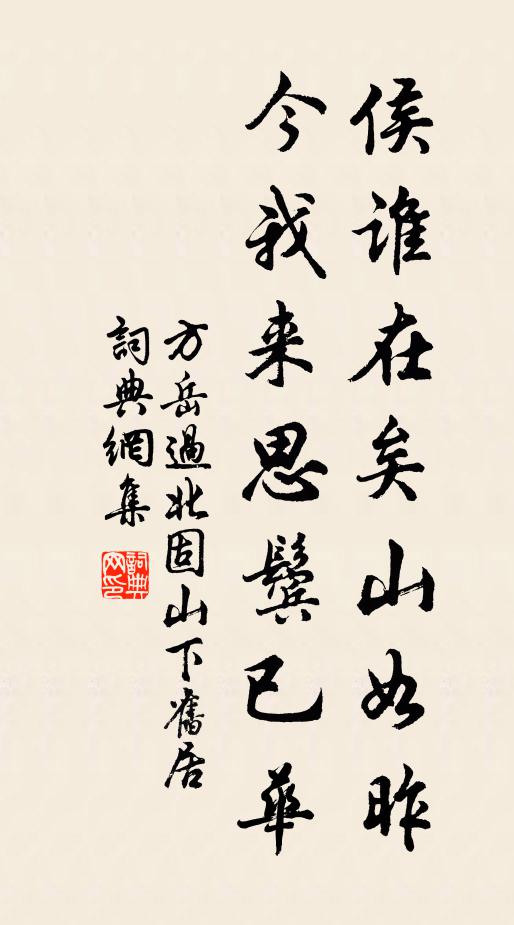 侯谁在矣山如昨
今我来思鬓已華
方岳過北固山下舊居
詞典網集
詞典网印